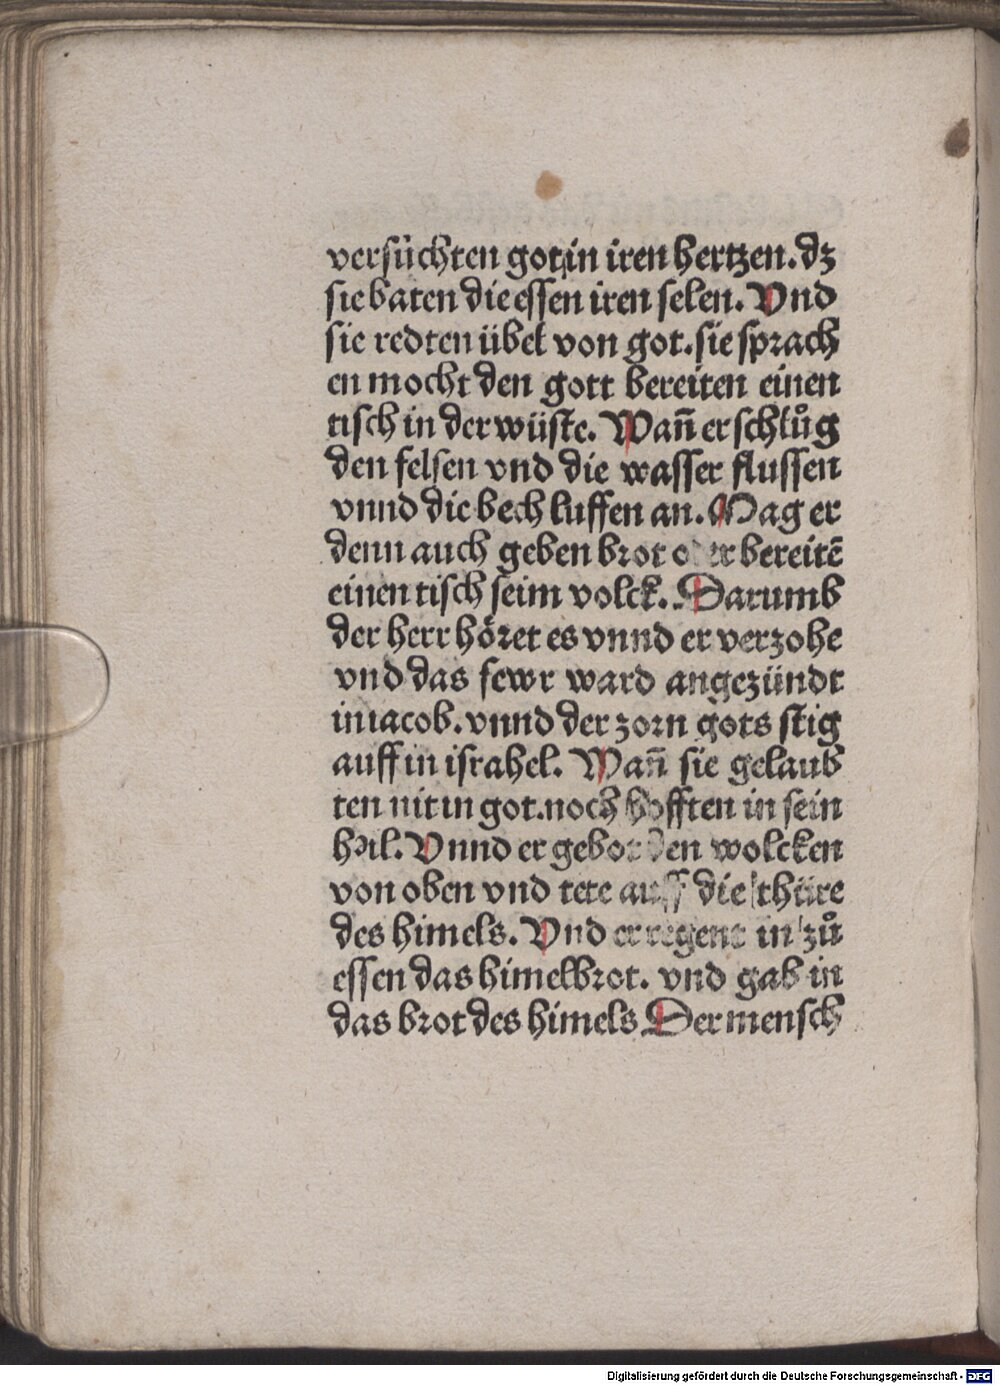 versůchten got in iren hertzen. dz
sie baten die essen iren selen. Vnd
sie redten übel von got. sie sprach
en mocht den gott bereiten einen
tisch in der wüste. Wañ er schlůg
den felsen vnd die wasser flussen
vnnd die bech luffen an. Mag er
denn auch geben brot oder bereitē
einen tisch seim volck. Darumb
der herr höret es vnnd er verzohe
vnd das fewr ward angezündt
in iacob. vnnd der zorn gots stig
auff in israhel. Wañ sie gelaub
ten nit in got. noch hofften in sein
hail. Vnnd er gebot den wolcken
von oben vnd tete auff die thüre
des himels. Vnd er regent in zů
essen das himelbrot. vnd gab in
das brot des himels Der mensch
Digitalisierung gefördert durch die Deutsche Forschungsgemeinschaft - DFG